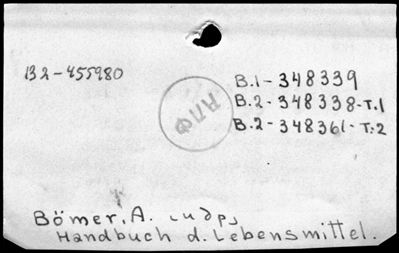 B2-455980
B.1-348339
B.2-348338-T.1
B.2-348361-T.2
АПФ
Bömer, A. и др.
Handbuch d. Lebensmittel.